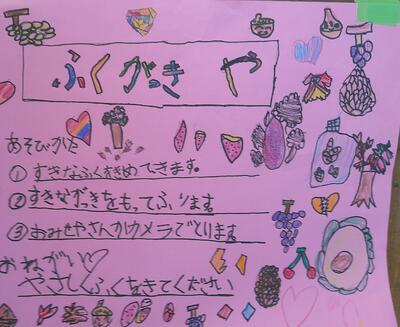 ふくがっきや
あそびかた
①すきなふくをきめてきます。
②すきながっきをもってふります。
③おみせやさんがカメラでとります。
おねがい♡
やさしくふくをきてください